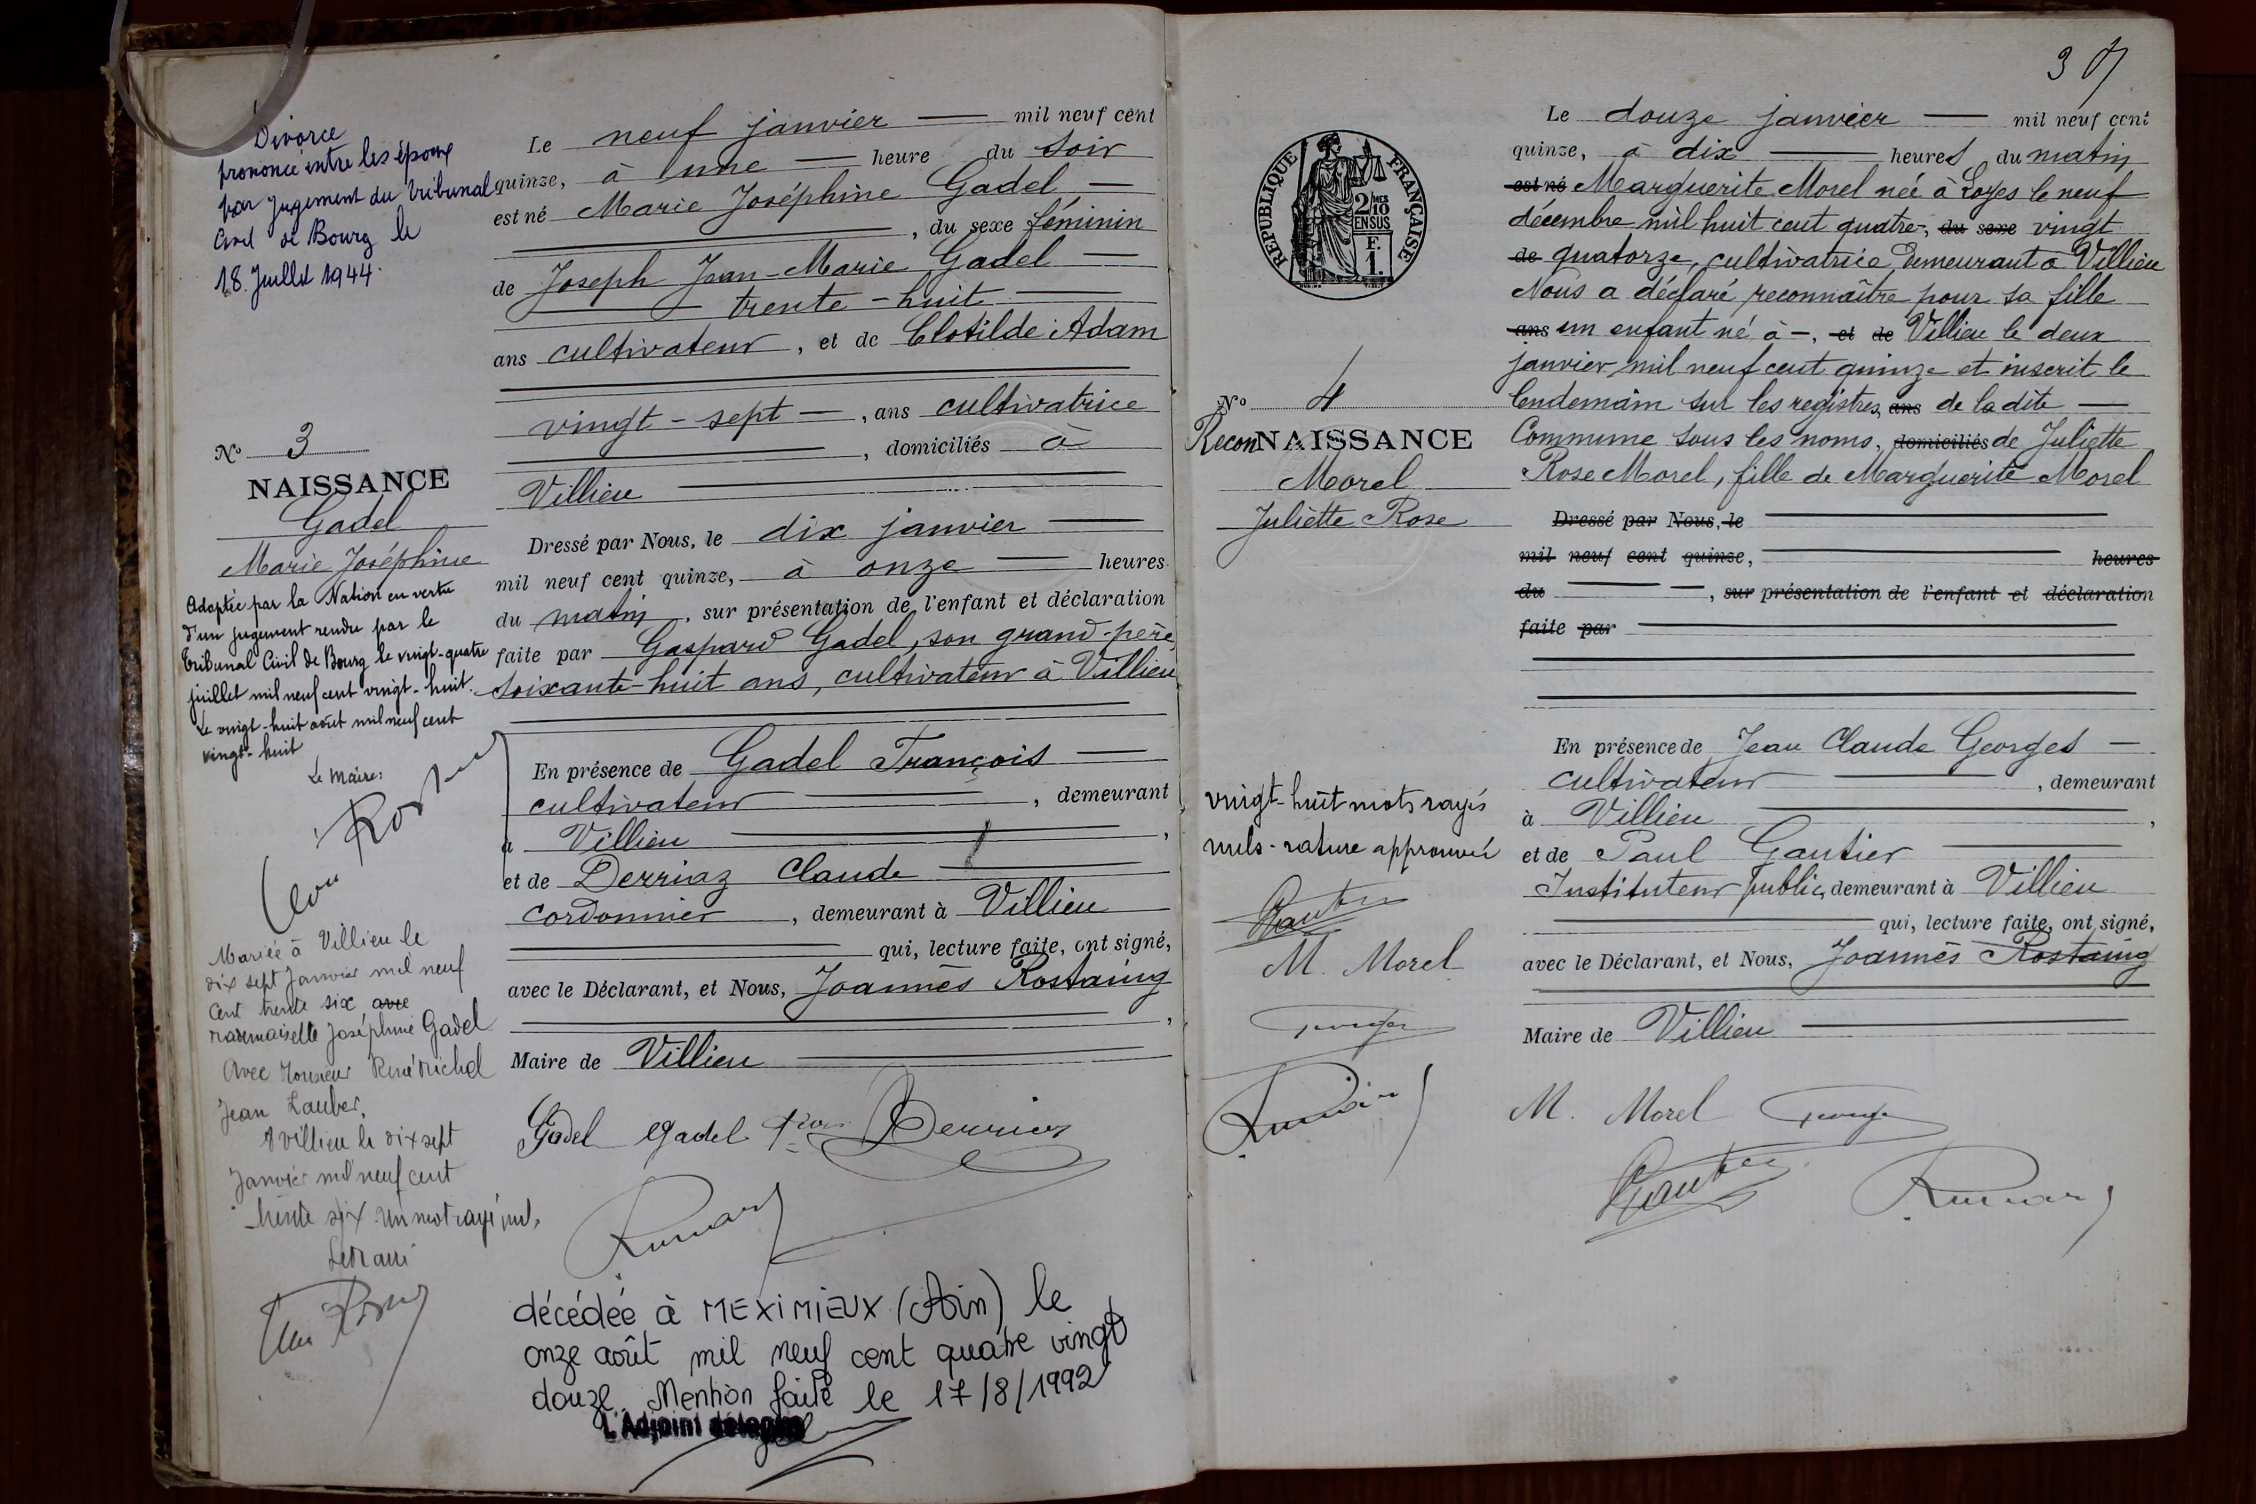 Divorce
prononcé entre les époux
par jugement du tribunal
civil de Bourg le
18 Juillet 1944.
N° 3
NAISSANCE
Gadel
Marie Joséphine
Adoptée par la Nation en vertu
d'un jugement rendu par le
Tribunal Civil de Bourg le vingt-quatre
juillet mil neuf cent vingt-huit.
Le vingt-huit août mil neuf cent
vingt-huit
Le Maire:
Mariée à Villieu le
dix sept Janvier mil neuf
cent trente six avec
mademoiselle Joséphine Gadel
Avec Monsieur René Michel
Jean Lauber,
A Villieu le dix sept
Janvier mil neuf cent
trente six. Un mot rayé nul,
Le Maire
Le neuf janvier — mil neuf cent
quinze, à une — heure du soir
est né Marie Joséphine Gadel —
, du sexe féminin
de Joseph Jean-Marie Gadel —
trente-huit —
ans cultivateur, et de Clotilde Adam
vingt-sept —, ans cultivatrice
, domiciliés à
Villieu
Dressé par Nous, le dix janvier —
mil neuf cent quinze, à onze — heures
du matin, sur présentation de l'enfant et déclaration
faite par Gaspard Gadel, son grand-père,
soixante-huit ans, cultivateur à Villieu
En présence de Gadel François —
cultivateur —, demeurant
à Villieu —,
et de Derriaz Claude —
cordonnier, demeurant à Villieu
qui, lecture faite, ont signé,
avec le Déclarant, et Nous, Joannès Rostaing
,
Maire de Villieu
Gadel Gadel Derriaz
décédée à MEXIMIEUX (Ain) le
onze août mil neuf cent quatre vingt
douze. Mention faite le 17/8/1992
L'Adjoint délégué
3
N° 4
ReconNAISSANCE
Morel
Juliette Rose
vingt-huit mots rayés
nuls - rature approuvés
Gautier
M. Morel
Georges
RÉPUBLIQUE FRANÇAISE
2 MES
10
EN SUS
F.
1.
Le douze janvier — mil neuf cent
quinze, à dix — heures du matin
est né Marguerite Morel née à Loyes le neuf
décembre mil huit cent quatre-, du sexe vingt
de quatorze, cultivatrice, demeurant à Villieu
Nous a déclaré reconnaître pour sa fille
ans un enfant né à —, et de Villieu le deux
janvier mil neuf cent quinze et inscrit le
lendemain sur les registres, ans de la dite —
Commune sous les noms, domiciliés de Juliette
Rose Morel, fille de Marguerite Morel
Dressé par Nous, le
mil neuf cent quinze, heures
du —, sur présentation de l'enfant et déclaration
faite par
En présence de Jean Claude Georges —
cultivateur —, demeurant
à Villieu —,
et de Paul Gautier
Instituteur public, demeurant à Villieu
qui, lecture faite, ont signé,
avec le Déclarant, et Nous, Joannès Rostaing
Maire de Villieu
M. Morel Georges
Gautier